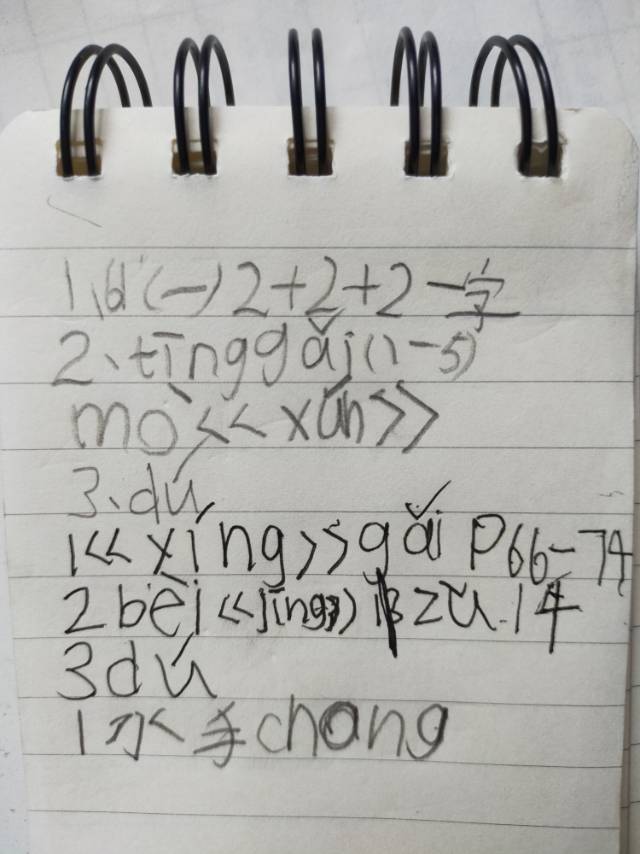 1、日(一)2+2+2一字
2、tīnggǎi(1-5)
mò《xún》
3、dú
1《xíng》gǎi P66-74
2bèi《jīng》zǔ.14
3dú
1水手chang